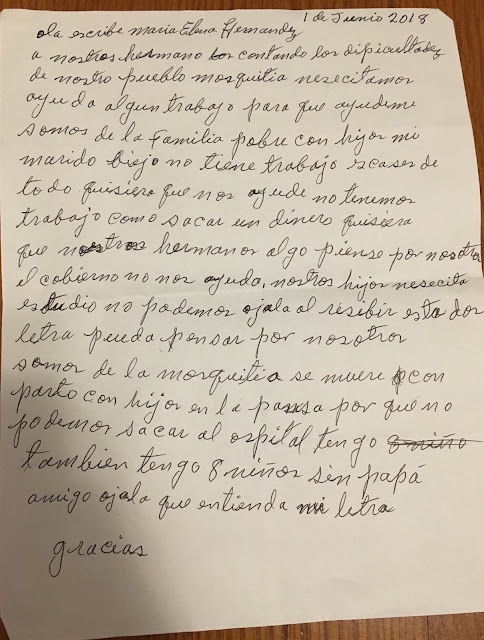 1 de Junio 2018
ola escribe maria Elena Hernandez
a nostros hermano contando los dipicultadez
de nostro pueblo mosquitia nesecitamos
ayuda algun trabajo para que ayudeme
somos de la Familia pobre con hijos mi
marido biejo no tiene trabajo scases de
todo quisiera que nos ayude no tenemos
trabajo como sacar un dinero quisiera
que nostros hermanos algo piense por nosotros
el cobierno no nos ayuda, nostros hijos nesecita
estudio no podemos ojala al resibir esta dos
letra pueda pensar por nosotros
somos de la mosquitia se muere con
parto con hijos en la pansa por que no
podemos sacar al ospital tengo 8 niño
tambien tengo 8 niños sin papá
amigo ojala que entienda mi letra
gracias